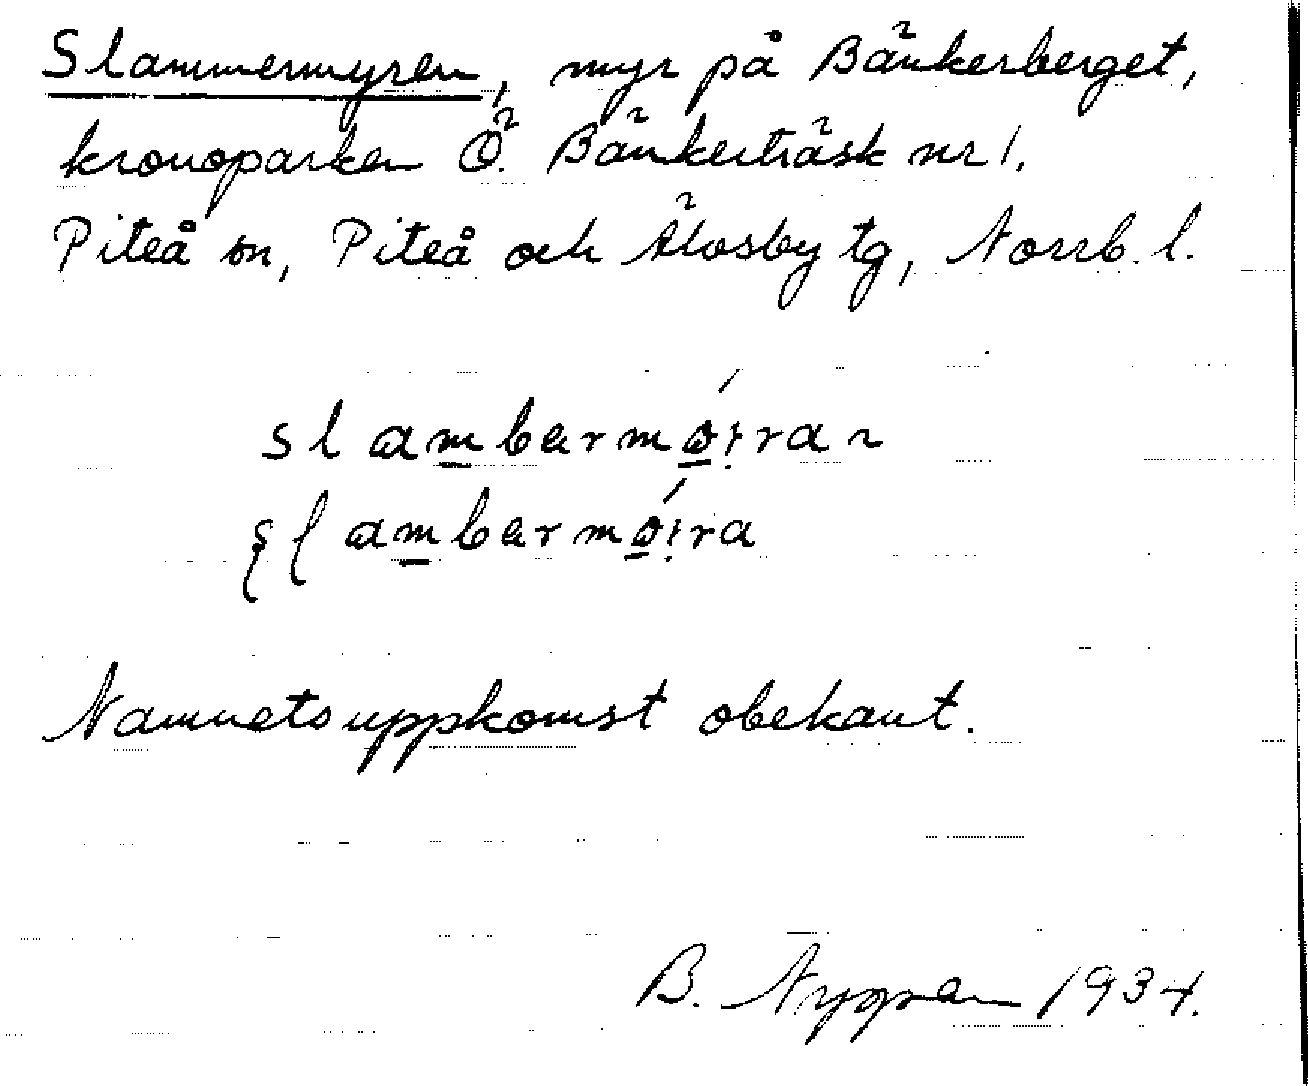 Slammermyren, myr på Bänkerberget,
kronoparken Ö. Bänkerträsk nr 1.
Piteå sn, Piteå och Älvsby tg, Norrb. l.
slambarmóiran
ʂɭambarmóira
Namnets uppkomst obekant.
B. Nygren 1934.